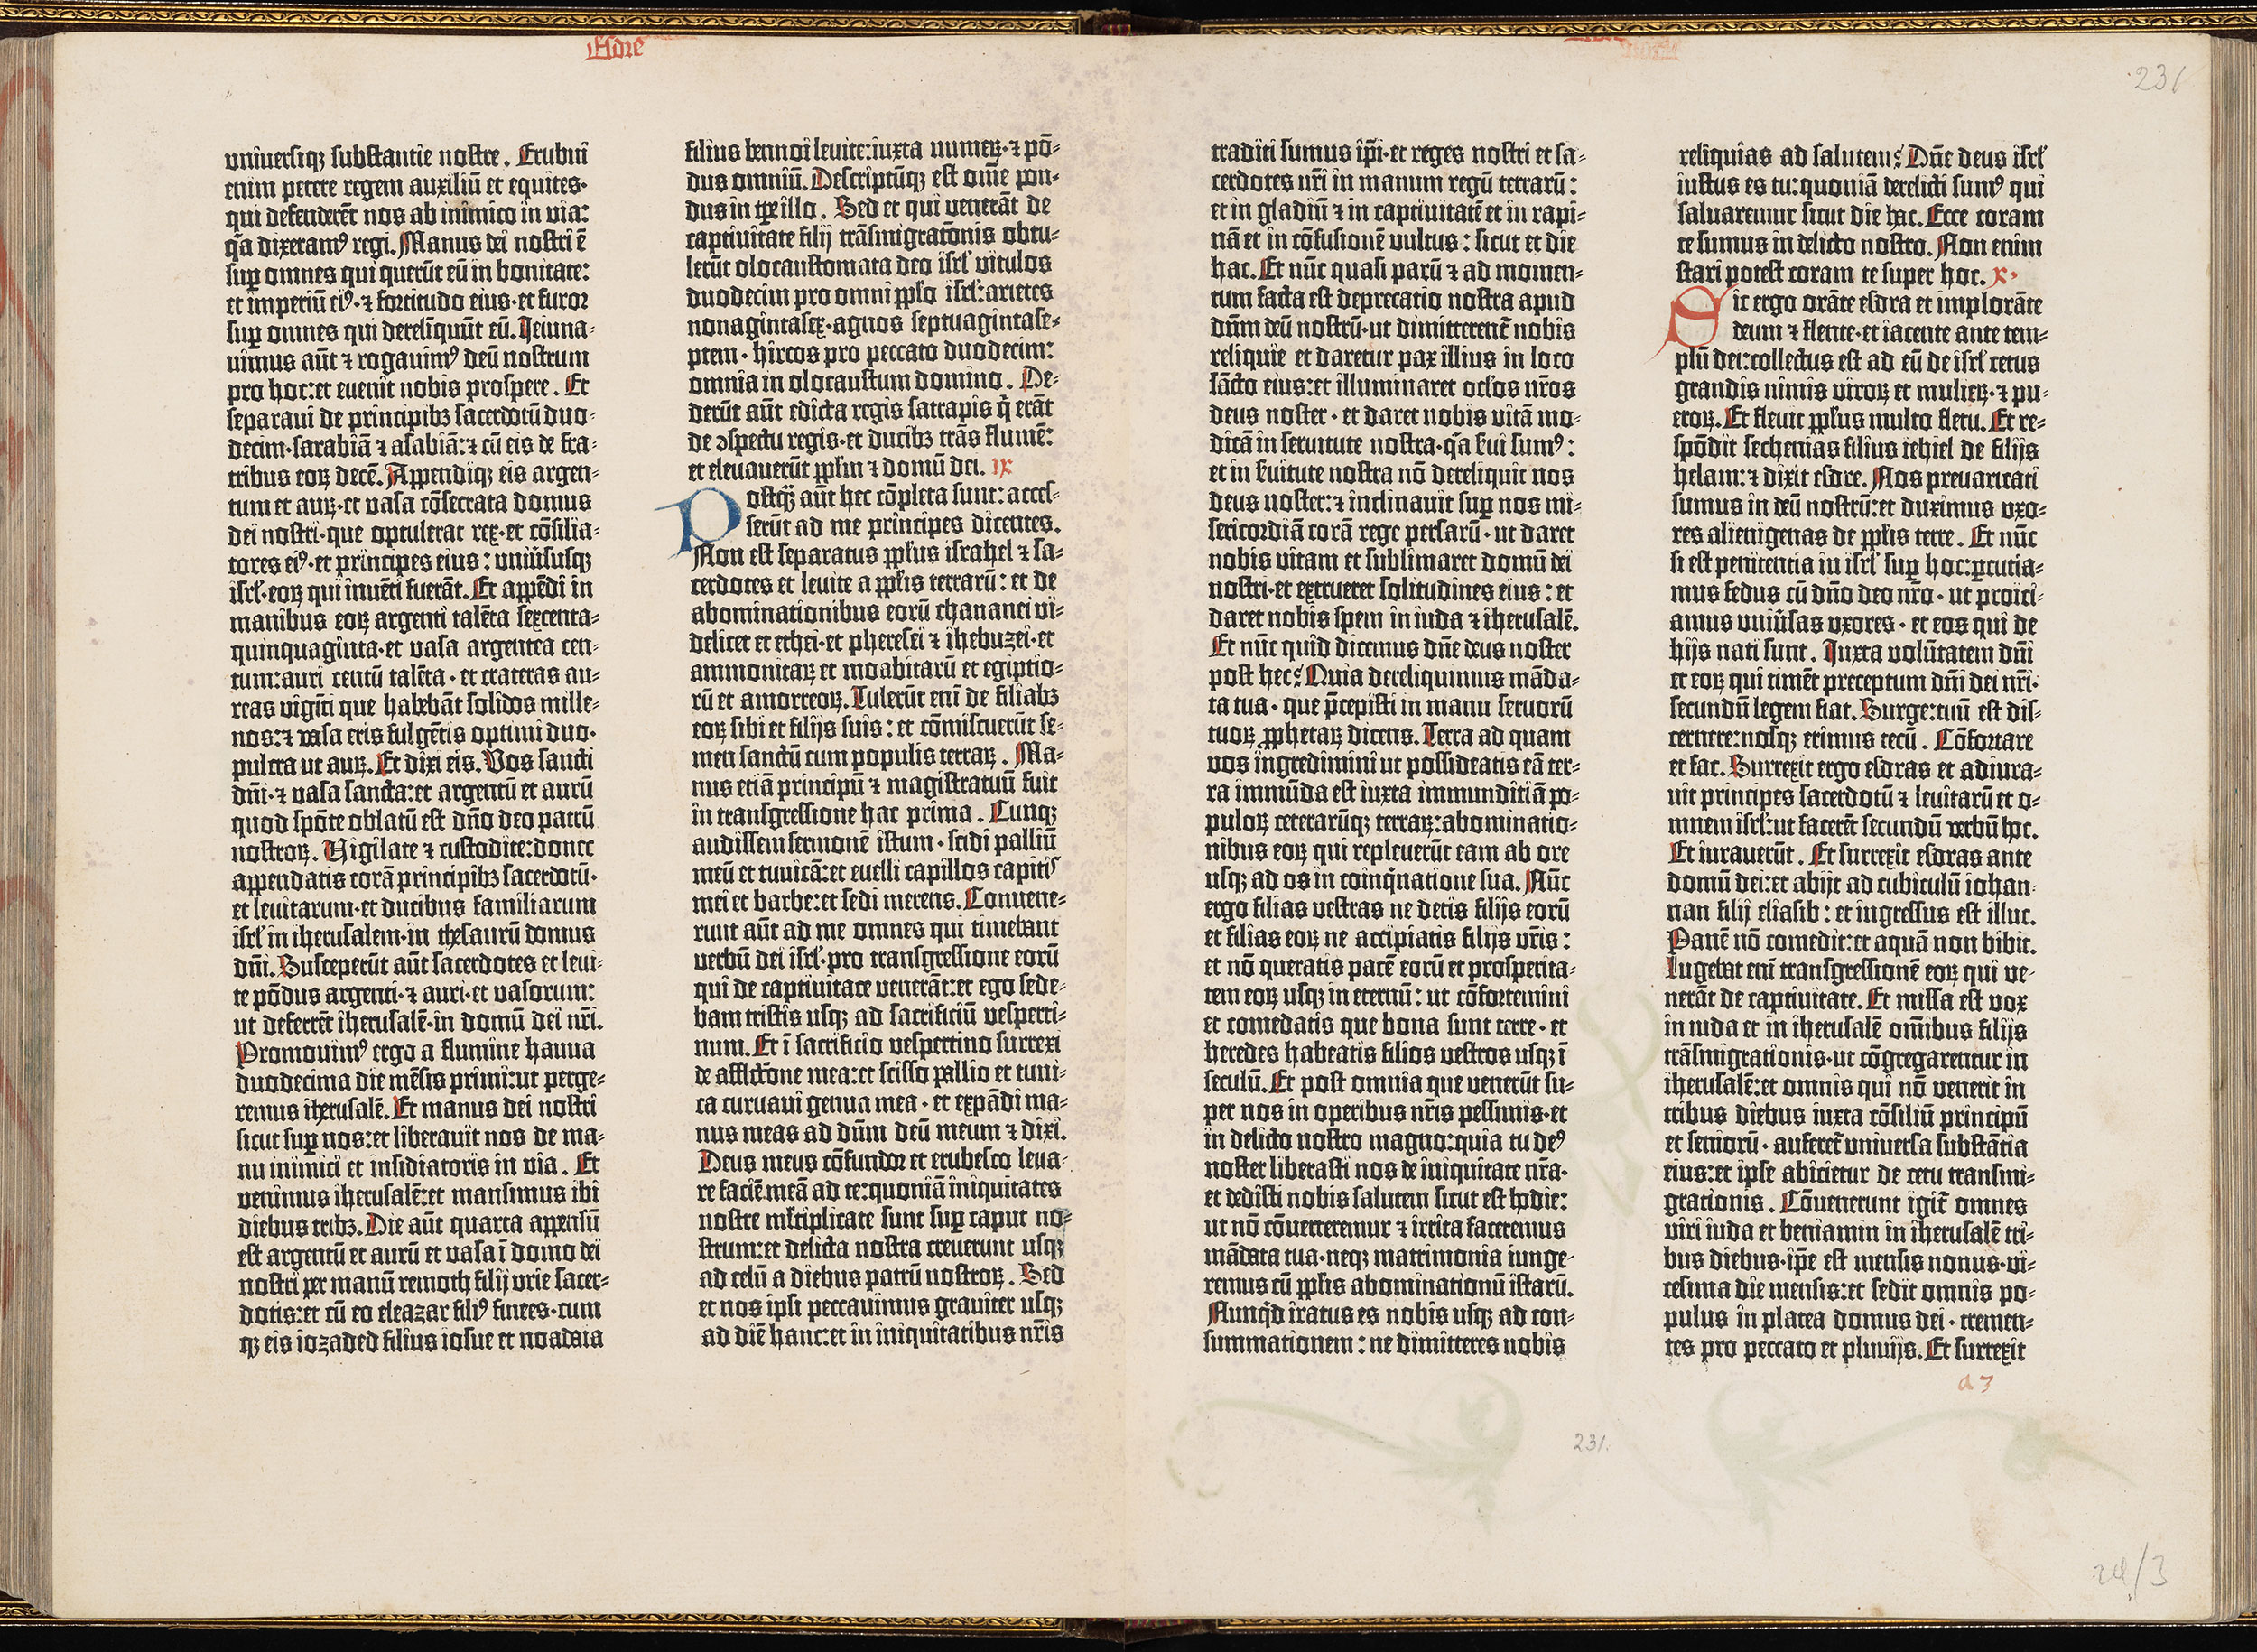 Esdre
231
uniuersiqꝫ substantie nostre. Erubui
enim petere regem auxiliū et equites·
qui defenderēt nos ab inimico in via:
q̄a dixeramꝰ regi. Manus dei nostri ē
suꝑ omnes qui querūt eū in bonitate:
et imperiū eiꝰ·⁊ fortitudo eius·et furor
suꝑ omnes qui dereliquūt eū. Jeiuna⸗
uimus aūt ⁊ rogauimꝰ deū nostrum
pro hoc:et euenit nobis prospere. Et
separaui de principibꝫ sacerdotū duo⸗
decim·sarabiā ⁊ asabiā:⁊ cū eis de fra⸗
tribus eoꝝ decē. Appendiqꝫ eis argen⸗
tum et auꝝ·et vasa cōsecrata domus
dei nostri·que optulerat rex·et cōsilia⸗
tores eiꝰ·et principes eius: uniūsusqꝫ
isrl̓·eoꝝ qui inuēti fuerāt. Et appēdi in
manibus eoꝝ argenti talēta sexcenta⸗
quinquaginta·et vasa argentea cen⸗
tum:auri centū talēta·et crateras au⸗
reas viginti que habebāt solidos mille⸗
nos:⁊ vasa eris fulgētis optimi duo·
pulcra ut auꝝ. Et dixi eis. Vos sancti
dn̄i·⁊ vasa sancta:et argentū et aurū
quod spōte oblatū est dn̄o deo patrū
nostroꝝ. Vigilate ⁊ custodite:donec
appendatis corā principibꝫ sacerdotū·
et leuitarum·et ducibus familiarum
isrl̓ in iherusalem·in thesaurū domus
dn̄i. Susceperūt aūt sacerdotes et leui⸗
te pōdus argenti·⁊ auri·et vasorum:
ut deferrēt iherusalē·in domū dei nr̄i.
Promouimꝰ ergo a flumine hauua
duodecima die mēsis primi:ut perge⸗
remus iherusalē. Et manus dei nostri
sicut suꝑ nos:et liberauit nos de ma⸗
nu inimici et insidiatoris in via. Et
venimus iherusalē:et mansimus ibi
diebus tribꝫ. Die aūt quarta appensū
est argentū et aurū et vasa ī domo dei
nostri per manū remoth filij vrie sacer⸗
dotis:et cū eo eleazar filiꝰ finees·cum
qꝫ eis iozaded filius iosue et noadaia
filius bennoi leuite:iuxta numeꝝ·⁊ pō⸗
dus omniū. Descriptūqꝫ est om̄e pon⸗
dus in tꝑe illo. Sed et qui venerāt de
captiuitate filij trāsmigratōnis obtu⸗
lerūt olocaustomata deo isrl̓ vitulos
duodecim pro omni pp̄lo isrl̓:arietes
nonagintasex·agnos septuagintase⸗
ptem·hircos pro peccato duodecim:
omnia in olocaustum domino. De⸗
derūt aūt edicta regis satrapis q̄ erāt
de ɔspectu regis·et ducibꝫ trās flumē:
et eleuauerūt pp̄lm ⁊ domū dei. ix
Postqꝫ̄ aūt hec cōpleta sunt: acces⸗
serūt ad me principes dicentes.
Non est separatus pp̄lus israhel ⁊ sa⸗
cerdotes et leuite a pp̄lis terrarū: et de
abominationibus eorū chananei vi⸗
delicet et ethei·et pheresei ⁊ ihebuzei·et
ammonitaꝝ et moabitarū et egiptio⸗
rū et amorreoꝝ. Tulerūt eni̅ de filiabꝫ
eoꝝ sibi et filijs suis: et cōmiscuerūt se⸗
men sanctū cum populis terraꝝ. Ma⸗
nus etiā principū ⁊ magistratuū fuit
in transgressione hac prima. Cunqꝫ
audissem sermonē istum·scidi palliū
meū et tunicā:et euelli capillos capitis
mei et barbe:et sedi merens. Conuene⸗
runt aūt ad me omnes qui timebant
verbū dei isrl̓·pro transgressione eorū
qui de captiuitate venerāt:et ego sede⸗
bam tristis usqꝫ ad sacrificiū vesperti⸗
num. Et ī sacrificio vespertino surrexi
de afflictōne mea:et scisso pallio et tuni⸗
ca curuaui genua mea·et expādi ma⸗
nus meas ad dn̄m deū meum ⁊ dixi.
Deus meus cōfundor et erubesco leua⸗
re faciē meā ad te:quoniā iniquitates
nostre ml̓tiplicate sunt suꝑ caput no⸗
strum:et delicta nostra creuerunt usqꝫ
ad celū a diebus patrū nostroꝝ. Sed
et nos ipsi peccauimus grauiter usqꝫ
ad diē hanc:et in iniquitatibus nr̄is
traditi sumus ip̄i·et reges nostri et sa⸗
cerdotes nr̄i in manum regū terrarū:
et in gladiū ⁊ in captiuitatē et in rapi⸗
nā et in cōfusionē vultus: sicut et die
hac. Et nūc quasi parū ⁊ ad momen⸗
tum facta est deprecatio nostra apud
dn̄m deū nostrū·ut dimitterent̄ nobis
reliquie et daretur pax illius in loco
sācto eius:et illuminaret ocl̓os nr̄os
deus noster·et daret nobis vitā mo⸗
dicā in seruitute nostra·q̄a s̓ui sumꝰ:
et in s̓uitute nostra nō dereliquit nos
deus noster:⁊ inclinauit suꝑ nos mi⸗
sericordiā corā rege persarū·ut daret
nobis vitam et sublimaret domū dei
nostri·et extrueret solitudines eius: et
daret nobis spem in iuda ⁊ iherusalē.
Et nūc quid dicemus dn̄e deus noster
post hec? Quia dereliquimus māda⸗
ta tua·que p̄cepisti in manu seruorū
tuoꝝ ꝓphetaꝝ dicens. Terra ad quam
vos ingredimini ut possideatis eā ter⸗
ra immūda est iuxta immunditiā po⸗
puloꝝ ceterarūqꝫ terraꝝ:abominatio⸗
nibus eoꝝ qui repleuerūt eam ab ore
usqꝫ ad os in coinq̄natione sua. Nūc
ergo filias vestras ne detis filijs eorū
et filias eoꝝ ne accipiatis filijs vr̄is:
et nō queratis pacē eorū et prosperita⸗
tem eoꝝ usqꝫ in eternū: ut cōfortemini
et comedatis que bona sunt terre·et
heredes habeatis filios vestros usqꝫ ī
seculū. Et post omnia que venerūt su⸗
per nos in operibus nr̄is pessimis·et
in delicto nostro magno:quia tu deꝰ
noster liberasti nos de iniquitate nr̄a·
et dedisti nobis salutem sicut est hodie:
ut nō cōuerteremur ⁊ irrita faceremus
mādata tua·neqꝫ matrimonia iunge⸗
remus cū pp̄lis abominationū istarū.
Nunq̄d iratus es nobis usqꝫ ad con⸗
summationem: ne dimitteres nobis
reliquias ad salutem? Dn̄e deus isrl̓
iustus es tu:quoniā derelicti sumꝰ qui
saluaremur sicut die hac. Ecce coram
te sumus in delicto nostro. Non enim
stari potest coram te super hoc. x·
Sic ergo orāte esdra et implorāte
deum ⁊ flente·et iacente ante tem⸗
plū dei:collectus est ad eū de isrl̓ cetus
grandis nimis viroꝝ et mulieꝝ·⁊ pu⸗
eroꝝ. Et fleuit pp̄lus multo fletu. Et re⸗
spōdit sechenias filius iehiel de filijs
helam:⁊ dixit esdre. Nos preuaricati
sumus in deū nostrū:et duximus uxo⸗
res alienigenas de pp̄lis terre. Et nūc
si est penitentia in isrl̓ suꝑ hoc:ꝑcutia⸗
mus fedus cū dn̄o deo nr̄o·ut proici⸗
amus uniūsas uxores·et eos qui de
hijs nati sunt. Juxta volūtatem dn̄i
et eoꝝ qui timēt preceptum dn̄i dei nr̄i·
secundū legem fiat. Surge:tuū est dis⸗
cernere:nosqꝫ erimus tecū. Cōfortare
et fac. Surrexit ergo esdras et adiura⸗
uit principes sacerdotū ⁊ leuitarū et o⸗
mnem isrl̓:ut facerēt secundū verbū hoc.
Et iurauerūt. Et surrexit esdras ante
domū dei:et abijt ad cubiculū iohan⸗
nan filij eliasib: et ingressus est illuc.
Panē nō comedit:et aquā non bibit.
Lugebat eni̅ transgressionē eoꝝ qui ve⸗
nerāt de captiuitate. Et missa est vox
in iuda et in iherusalē om̄ibus filijs
trāsmigrationis·ut cōgregarentur in
iherusalē:et omnis qui nō venerit in
tribus diebus iuxta cōsiliū principū
et seniorū·auferet̄ vniuersa substātia
eius:et ipse abicietur de cetu transmi⸗
grationis. Cōuenerunt igit̄ omnes
viri iuda et beniamin in iherusalē tri⸗
bus diebus·ip̄e est mensis nonus·vi⸗
cesima die mensis:et sedit omnis po⸗
pulus in platea domus dei·tremen⸗
tes pro peccato et pluuijs. Et surrexit
a 7
231.
24/3